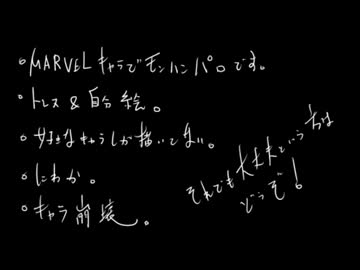 ・MARVELキャラでモンハンパロです。
・トレス&自分絵。
・好きなキャラしか描いてない。
・にわか。
・キャラ崩壊。
それでも大丈夫という方は
どうぞ！